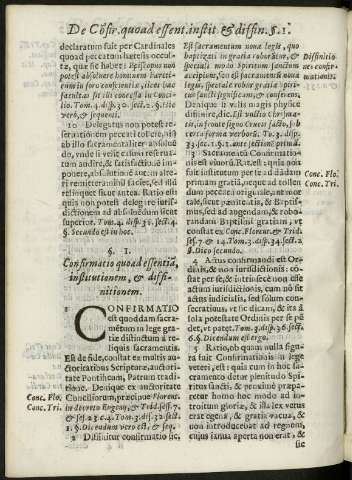 De Cõfir. quoad essent. instit. & diffin. §. 1.
declaratum fuit per Cardinales
quod peccatum hæresis occul-
tæ, quæ sic habet: Episcopus non
potest absoluere hominem hæreti-
cum in foro conscientiæ, licet hæc
facultas sit illi concessa in Conci-
lio. Tom. 4. disp. 30. sect. 2. §. ite
verò, & sequenti.
10 Delegatus non potest re-
seruationem peccati tollere, nisi
ab illo sacramentaliter absoluẽ-
do, vnde si velit casum reserua-
tum audire, & satisfactionem
imponere, absolutionem autem al-
teri remittere
relinquere sicut antea. Ratio est
quia non potest delegare iurisdi-
ctionem ad absoluendum sicut
superior. Tom. 4. disp. 31. sect. 4.
§. Secundo est in hoc.
§. 1.
Confirmatio quoad essentiã,
institutionem, & diffi-
nitionem.
1 CONFIRMATIO
est quoddam sacra-
mẽtum in lege gra-
tiæ distinctum a re-
liquis sacramentis.
Est de fide, constat ex multis au-
ctoritatibus Scripturæ, auctori-
tate Pontificum, Patrum traditi-
one. Denique ex auctoritate
Conciliorum, præcipuè Florent.
in decreto Eugenij, & Trid. sess. 7.
& sess. 23. c. 4. Tom. 3. disp. 32. sect.
1. §. Dicendum vero est, & seq.
2 Diffinitur confirmatio sic,
Conc. Flo.
Conc. Tri.
Est sacramentum nouæ legis, quo
baptizati in gratia roborãtur, &
speciali modo Spiritum sanctum
accipiunt. Vel sic: Est sacramen-
tum nouæ legis, speciale gratiã spi-
ritus sancti significans, & conferens.
Denique si velis magis physicè
diffinire, dic, Est vnctio chrisma-
tis, in fronte signo Crucis facta, sub
certa forma verborũ. Tom. 3. disp.
33. sect. 1. §. 1. ante sectionẽ primã.
3 Sacramentum Confirmatio-
nis est vnum. R. Est. est quia non
est institutum per se ad dãdam
primam gratiam, neque ad tollen-
dum peccatum originale, vel mor-
tale, sicut pœnitentia, & Baptis-
mus, sed ad augendam, & robo-
randam Baptismi gratiam, vt
constat ex Concil. Flor. & Trid.
sess. 7. & 14. Tom. 3. disp. 34. sect. 2
§. Dico secundo.
4 Actus confirmandi est Or-
dinis, & non iurisdictionis: cõs-
tat per se, & intrinsecè non esse
actum iurisdictionis, cum nõ sit
actus iudicialis, sed solum con-
secratiuus, vt sic dicam, & ita à
sola potestate Ordinis per se pẽ
det, vt patet. Tom. 3. disp. 36. sect.
6. §. Dicendum est ergo.
5 Ratio, ob quam nulla figu-
ra fuit Confirmationis in lege
veteri, est: quia cum in hoc sa-
cramento detur plenitudo Spi-
ritus sancti, & proximè præpa-
retur homo hoc modo ad in-
troitum gloriæ, & illa lex vetus
erat egena, & gratia vacua, &
non introducebat ad regnum,
cuius ianua aperta non erat, &
sic
Diffinitio
confir-
mationis.
Conc. Flo.
Conc. Tri.